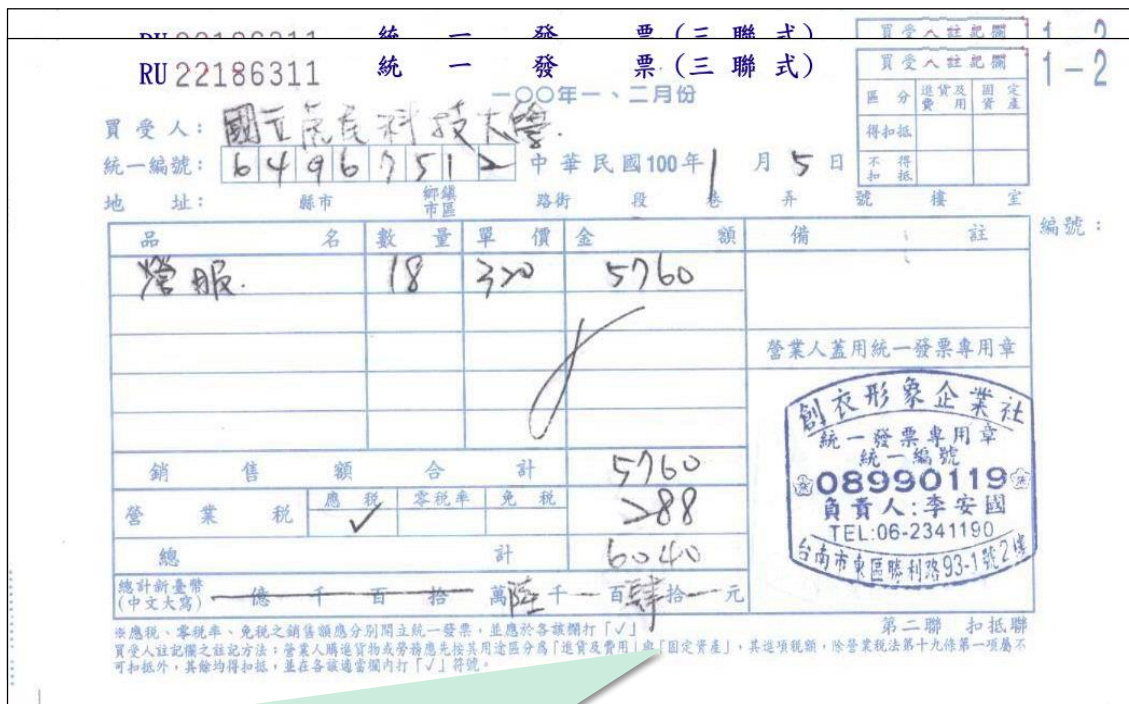 RU 22186311 統一發票(三聯式) 1-2
買受人註記欄
區分 進貨及費用 固定資產
得扣抵
不得扣抵
一○○年一、二月份
買受人: 國立虎尾科技大學.
統一編號: 64967512 中華民國100年1月5日
地址: 縣市 鄉鎮市區 路街 段 巷 弄 號 樓 室
編號:
品名 數量 單價 金額 備註
營服. 18 320 5760
營業人蓋用統一發票專用章
銷售額合計 5760
營業稅 應稅 ✓ 零稅率 免稅 288
總計 6040
總計新臺幣(中文大寫) 億千百拾萬陸千一百肆拾一元
創衣形象企業社
統一發票專用章
統一編號
08990119
負責人:李安國
TEL:06-2341190
台南市東區勝利路93-1號2樓
第二聯 扣抵聯
※應稅、零稅率、免稅之銷售額應分別開立統一發票,並應於各該欄打「✓」
買受人註記欄之註記方法:營業人購進貨物或勞務應先按其用途區分為「進貨及費用」與「固定資產」,其進項稅額,除營業稅法第十九條第一項屬不
可扣抵外,其餘均得扣抵,並在各該適當欄內打「✓」符號。